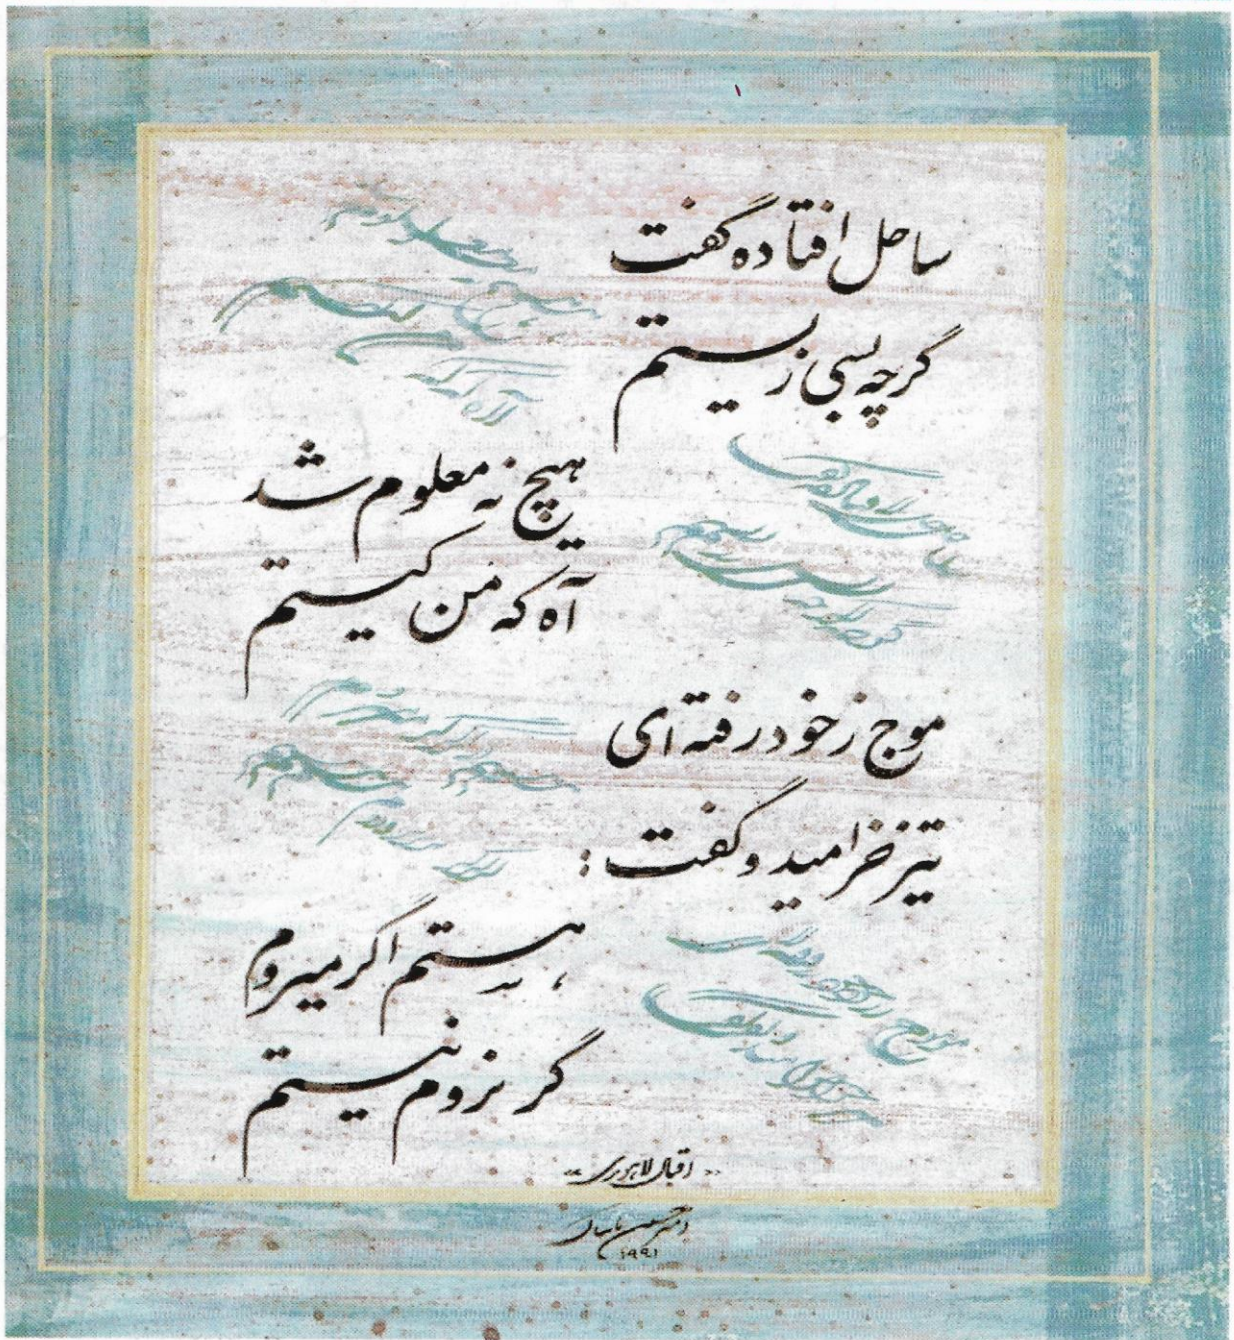 ساحل افتاده گفت
گرچه بسی زیستم
هیچ نه معلوم شد
آه که من کیستم
موج ز خود رفته‌ای
تیز خرامید و گفت :
هستم اگر میروم
گر نروم نیستم
اقبال لاهوری
۱۹۹۱